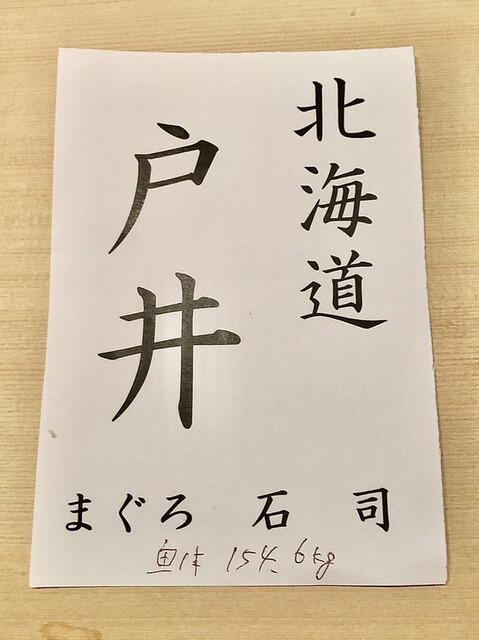 北海道
戸井
まぐろ 石司
魚体 154.6kg